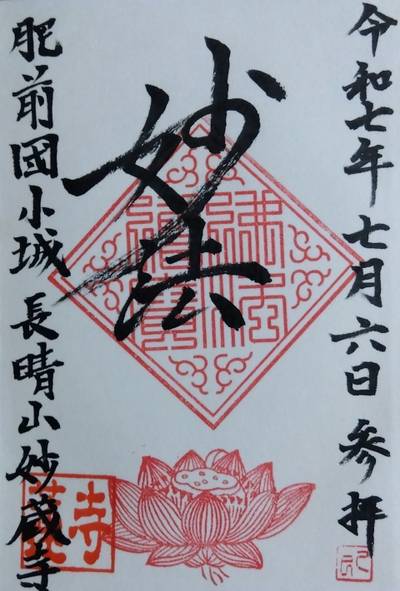 令和七年七月六日参拝
妙法
肥前國小城 長晴山妙蔵寺